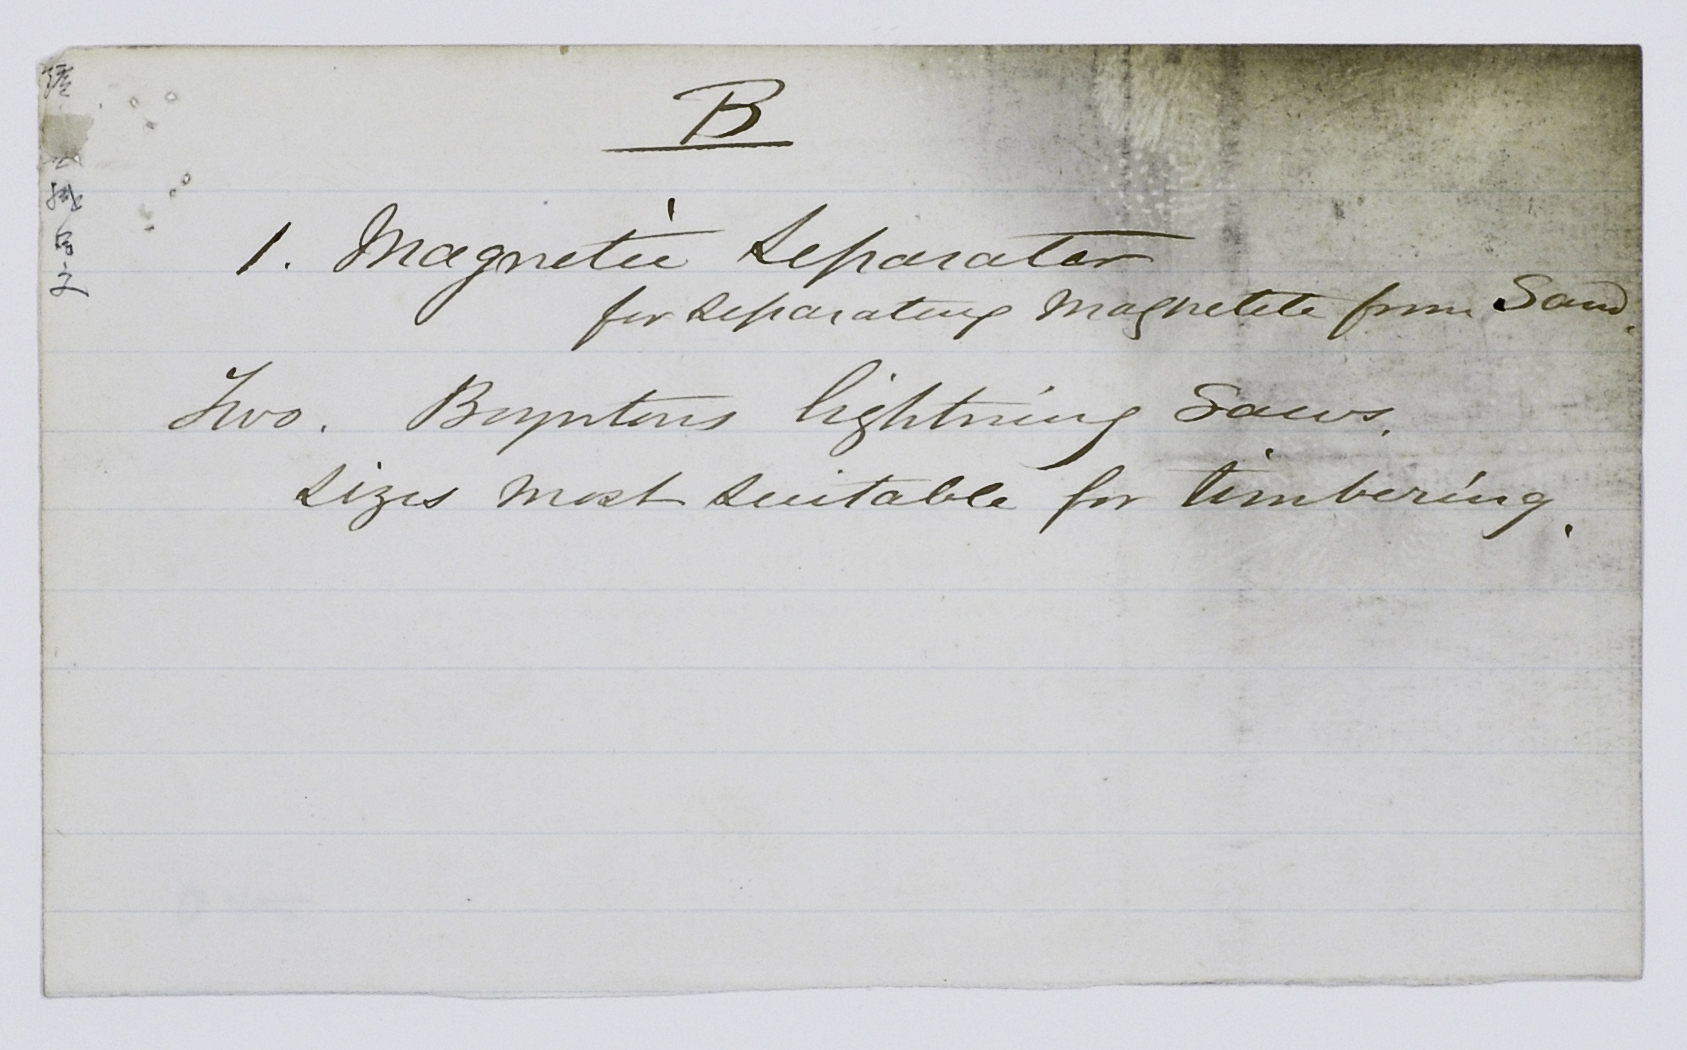 B
1. Magnetic Separator
for separating Magnetite from Sand.
Two. Boyntons lightning Saws.
Sizes most suitable for timbering.